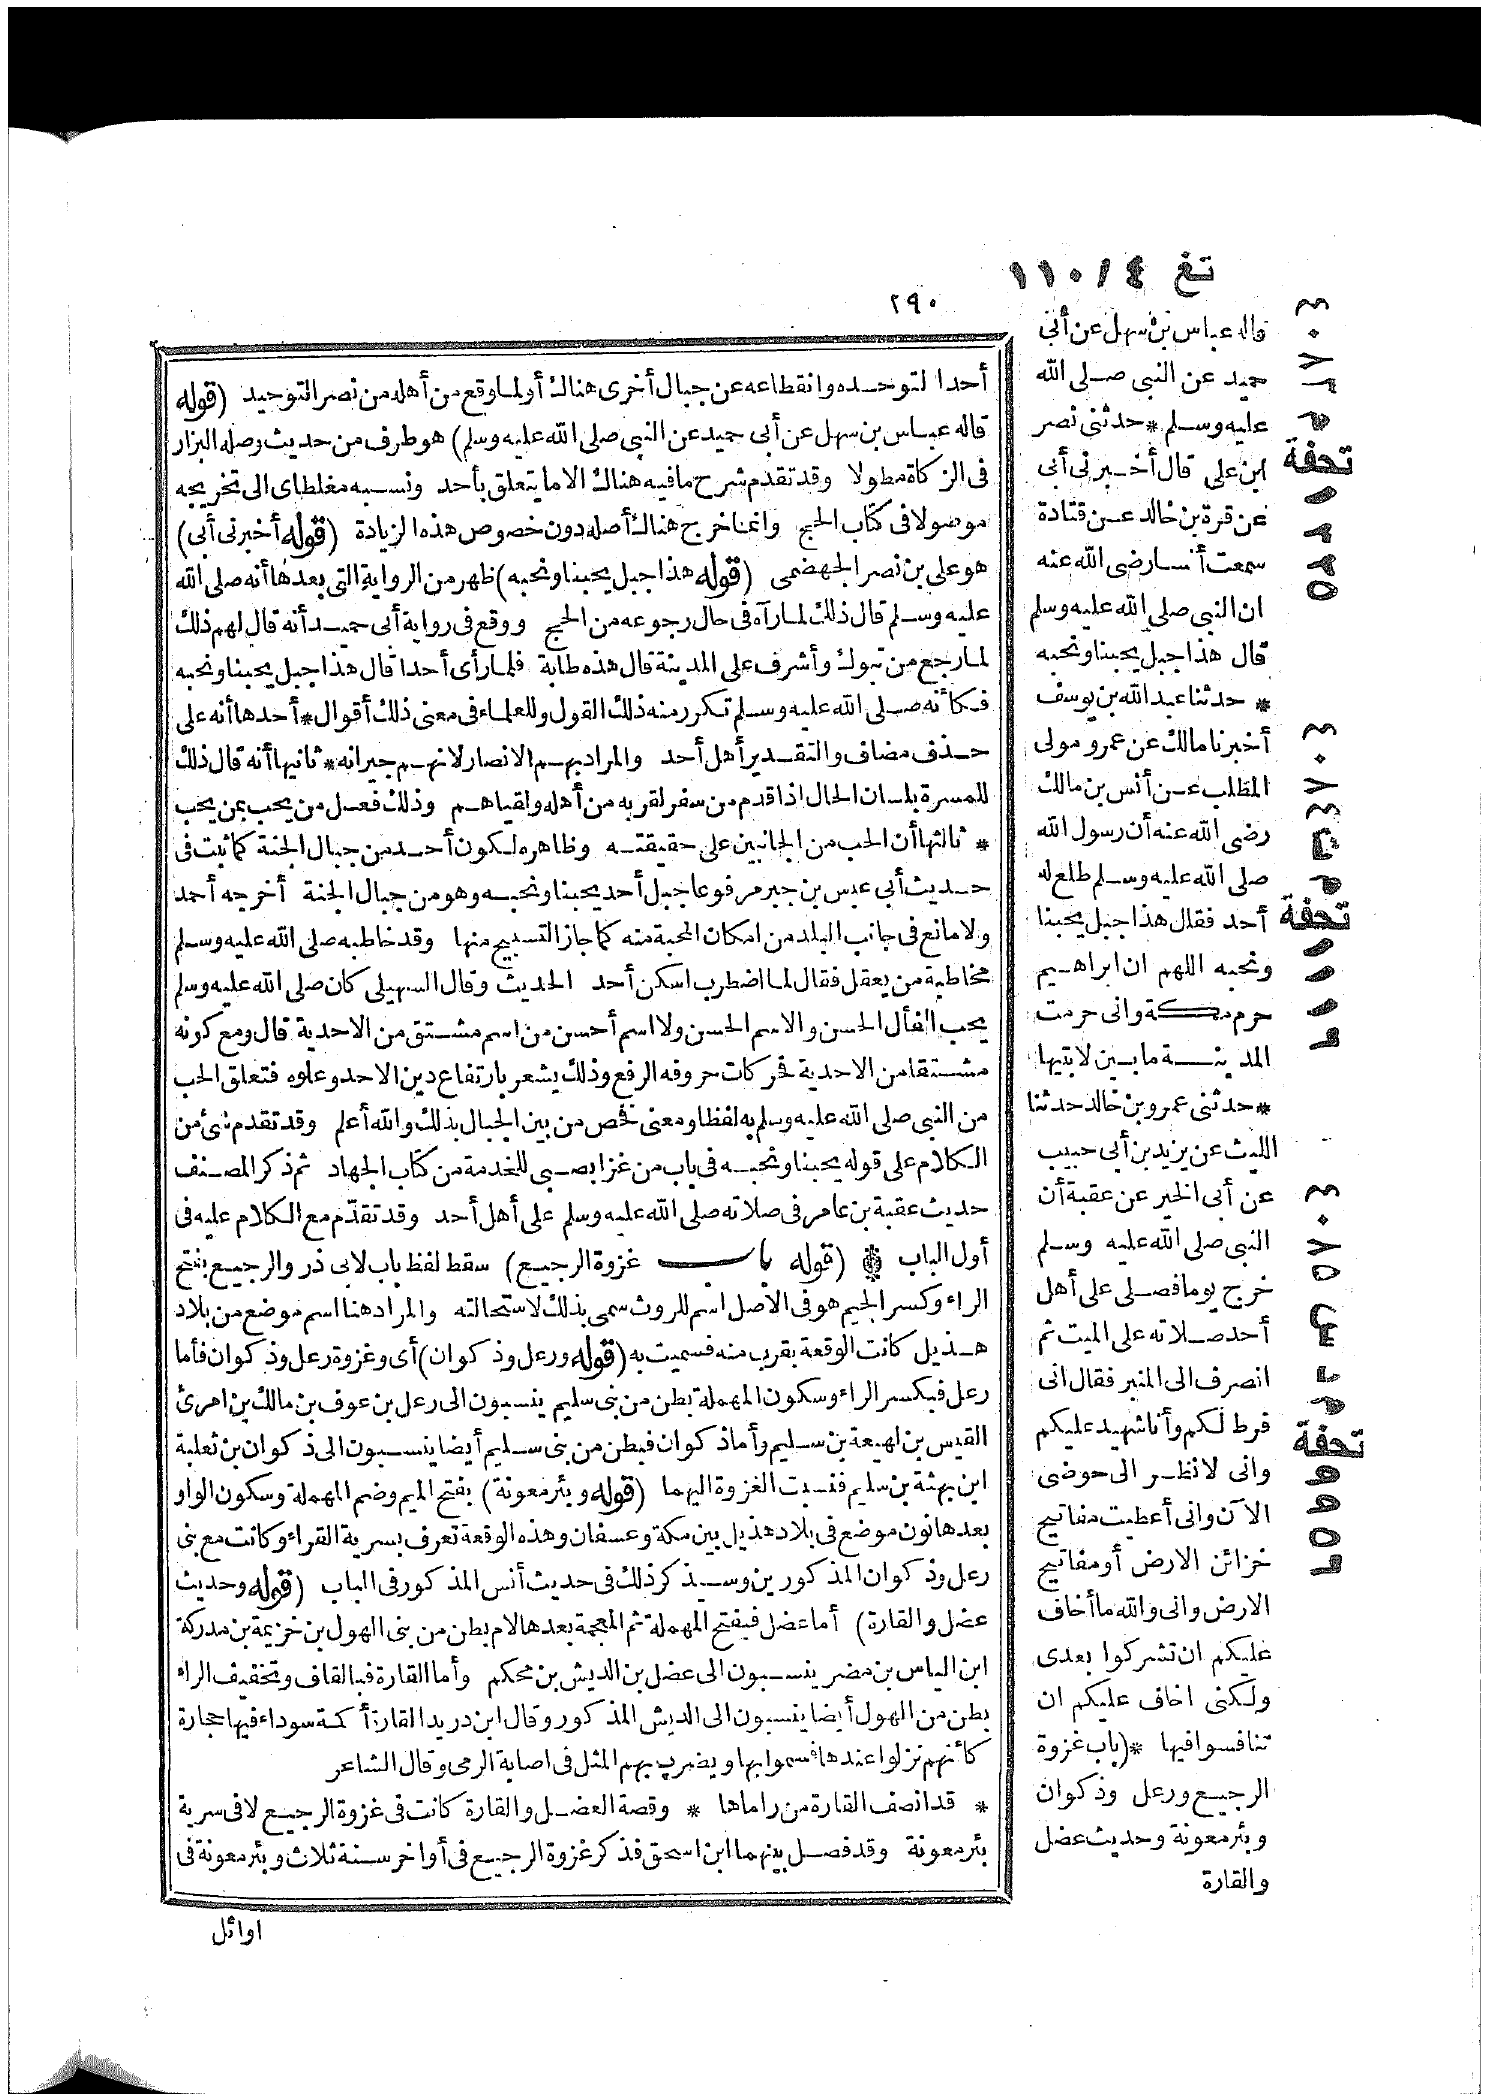 تغ ٤/١١٠
٢٩٠
قاله عباس بن سهل عن أبي
حميد عن النبي صلى الله
عليه وسلم * حدثني نصر
ابن علي قال أخبرني أبي
عن قرة بن خالد عن قتادة
سمعت أنسا رضى الله عنه
ان النبي صلى الله عليه وسلم
قال هذا جبل يحبنا ونحبه
* حدثنا عبد الله بن يوسف
أخبرنا مالك عن عمرو مولى
المطلب عن أنس بن مالك
رضى الله عنه أن رسول الله
صلى الله عليه وسلم طلع له
أحد فقال هذا جبل يحبنا
ونحبه اللهم ان ابراهيم
حرم مكة وانى حرمت
المدينة ما بين لابتيها
* حدثنى عمرو بن خالد حدثنا
الليث عن يزيد بن أبى حبيب
عن أبى الخير عن عقبة أن
النبى صلى الله عليه وسلم
خرج يوما فصلى على أهل
أحد صلاته على الميت ثم
انصرف الى المنبر فقال انى
فرط لكم وأنا شهيد عليكم
وانى لانظر الى حوضى
الآن وانى أعطيت مفاتيح
خزائن الارض أو مفاتيح
الارض وانى والله ما أخاف
عليكم ان تشركوا بعدى
ولكنى اخاف عليكم ان
تنافسوا فيها * (باب غزوة
الرجيع ورعل وذكوان
وبئر معونة وحديث عضل
والقارة
تحفة
تحفة
تحفة
أحدا لتوحده وانقطاعه عن جبال أخرى هناك أو لما وقع من أهله من نصر التوحيد (قوله
قاله عباس بن سهل عن أبى حميد عن النبى صلى الله عليه وسلم) هو طرف من حديث وصله البزار
فى الزكاة مطولا وقد تقدم شرح ما فيه هناك الا ما يتعلق بأحد ونسبه مغلطاى الى تخريجه
موصولا فى كتاب الحج وانما خرج هناك أصله دون خصوص هذه الزيادة (قوله أخبرنى أبى)
هو على بن نصر الجهضمى (قوله هذا جبل يحبنا ونحبه) ظهر من الرواية التى بعدها أنه صلى الله
عليه وسلم قال ذلك لما رآه فى حال رجوعه من الحج ووقع فى رواية أبى حميد أنه قال لهم ذلك
لما رجع من تبوك وأشرف على المدينة قال هذه طابة فلما رأى أحدا قال هذا جبل يحبنا ونحبه
فكأنه صلى الله عليه وسلم تكرر منه ذلك القول وللعلماء فى معنى ذلك أقوال * أحدها أنه على
حذف مضاف والتقدير أهل أحد والمراد بهم الانصار لانهم جيرانه * ثانيها أنه قال ذلك
للمسرة بلسان الحال اذا قدم من سفر لقربه من أهله ولقياهم وذلك فعل من يحب بمن يحب
* ثالثها أن الحب من الجانبين على حقيقته وظاهره لكون أحد من جبال الجنة كما ثبت فى
حديث أبى عبس بن جبر مرفوعا جبل أحد يحبنا ونحبه وهو من جبال الجنة أخرجه أحمد
ولا مانع فى جانب البلد من امكان المحبة منه كما جاز التسبيح منها وقد خاطبه صلى الله عليه وسلم
مخاطبة من يعقل فقال لما اضطرب اسكن أحد الحديث وقال السهيلى كان صلى الله عليه وسلم
يحب الفأل الحسن والاسم الحسن ولا اسم أحسن من اسم مشتق من الاحدية قال ومع كونه
مشتقا من الاحدية فحركات حروفه الرفع وذلك يشعر بارتفاع دين الاحد وعلوه فتعلق الحب
من النبى صلى الله عليه وسلم به لفظا ومعنى فخص من بين الجبال بذلك والله أعلم وقد تقدم شئ من
الكلام على قوله يحبنا ونحبه فى باب من غزا بصبى للخدمة من كتاب الجهاد ثم ذكر المصنف
حديث عقبة بن عامر فى صلاته صلى الله عليه وسلم على أهل أحد وقد تقدم مع الكلام عليه فى
أول الباب * (قوله باب غزوة الرجيع) سقط لفظ باب لابى ذر والرجيع بفتح
الراء وكسر الجيم هو فى الاصل اسم للروث سمى بذلك لاستحالته والمراد هنا اسم موضع من بلاد
هذيل كانت الوقعة بقرب منه فسميت به (قوله ورعل وذكوان) أى وغزوة رعل وذكوان فأما
رعل فبكسر الراء وسكون المهملة بطن من بنى سليم ينسبون الى رعل بن عوف بن مالك بن امرئ
القيس بن لهيعة بن سليم وأما ذكوان فبطن من بنى سليم أيضا ينسبون الى ذكوان بن ثعلبة
ابن بهثة بن سليم فنسبت الغزوة اليهما (قوله وبئر معونة) بفتح الميم وضم المهملة وسكون الواو
بعدها نون موضع فى بلاد هذيل بين مكة وعسفان وهذه الوقعة تعرف بسرية القراء وكانت مع بنى
رعل وذكوان المذكورين وسيذكر ذلك فى حديث أنس المذكور فى الباب (قوله وحديث
عضل والقارة) أما عضل فبفتح المهملة ثم المعجمة بعدها لام بطن من بنى الهول بن خزيمة بن مدركة
ابن الياس بن مضر ينسبون الى عضل بن الديش بن محكم وأما القارة فبالقاف وتخفيف الراء
بطن من الهول أيضا ينسبون الى الديش المذكور وقال ابن دريد القارة أكمة سوداء فيها حجارة
كأنهم نزلوا عندها فسموا بها ويضرب بهم المثل فى اصابة الرمى وقال الشاعر
* قد انصف القارة من راماها * وقصة العضل والقارة كانت فى غزوة الرجيع لا فى سرية
بئر معونة وقد فصل بينهما ابن اسحق فذكر غزوة الرجيع فى أواخر سنة ثلاث وبئر معونة فى
اوائل